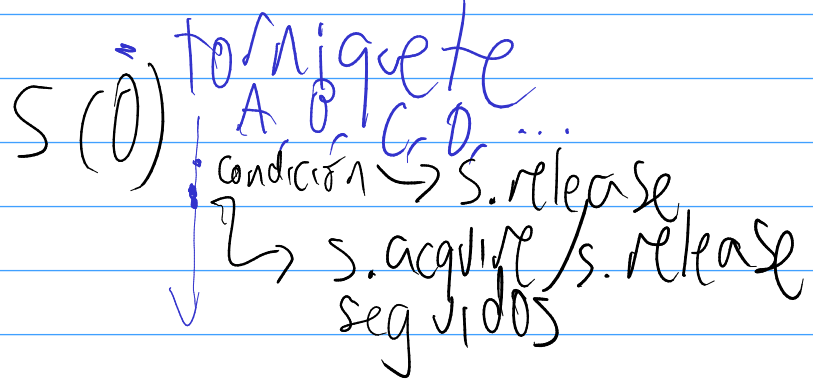 torniquete
S(0)
A, B, C, D, ...
condición → s.release
→ s.acquire/s.release
seguidos